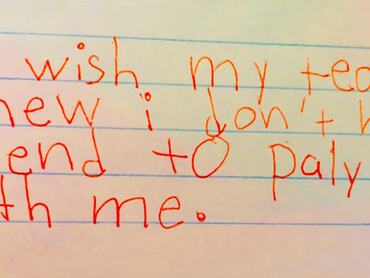 wish my tea
new i don't h
end to paly
th me.